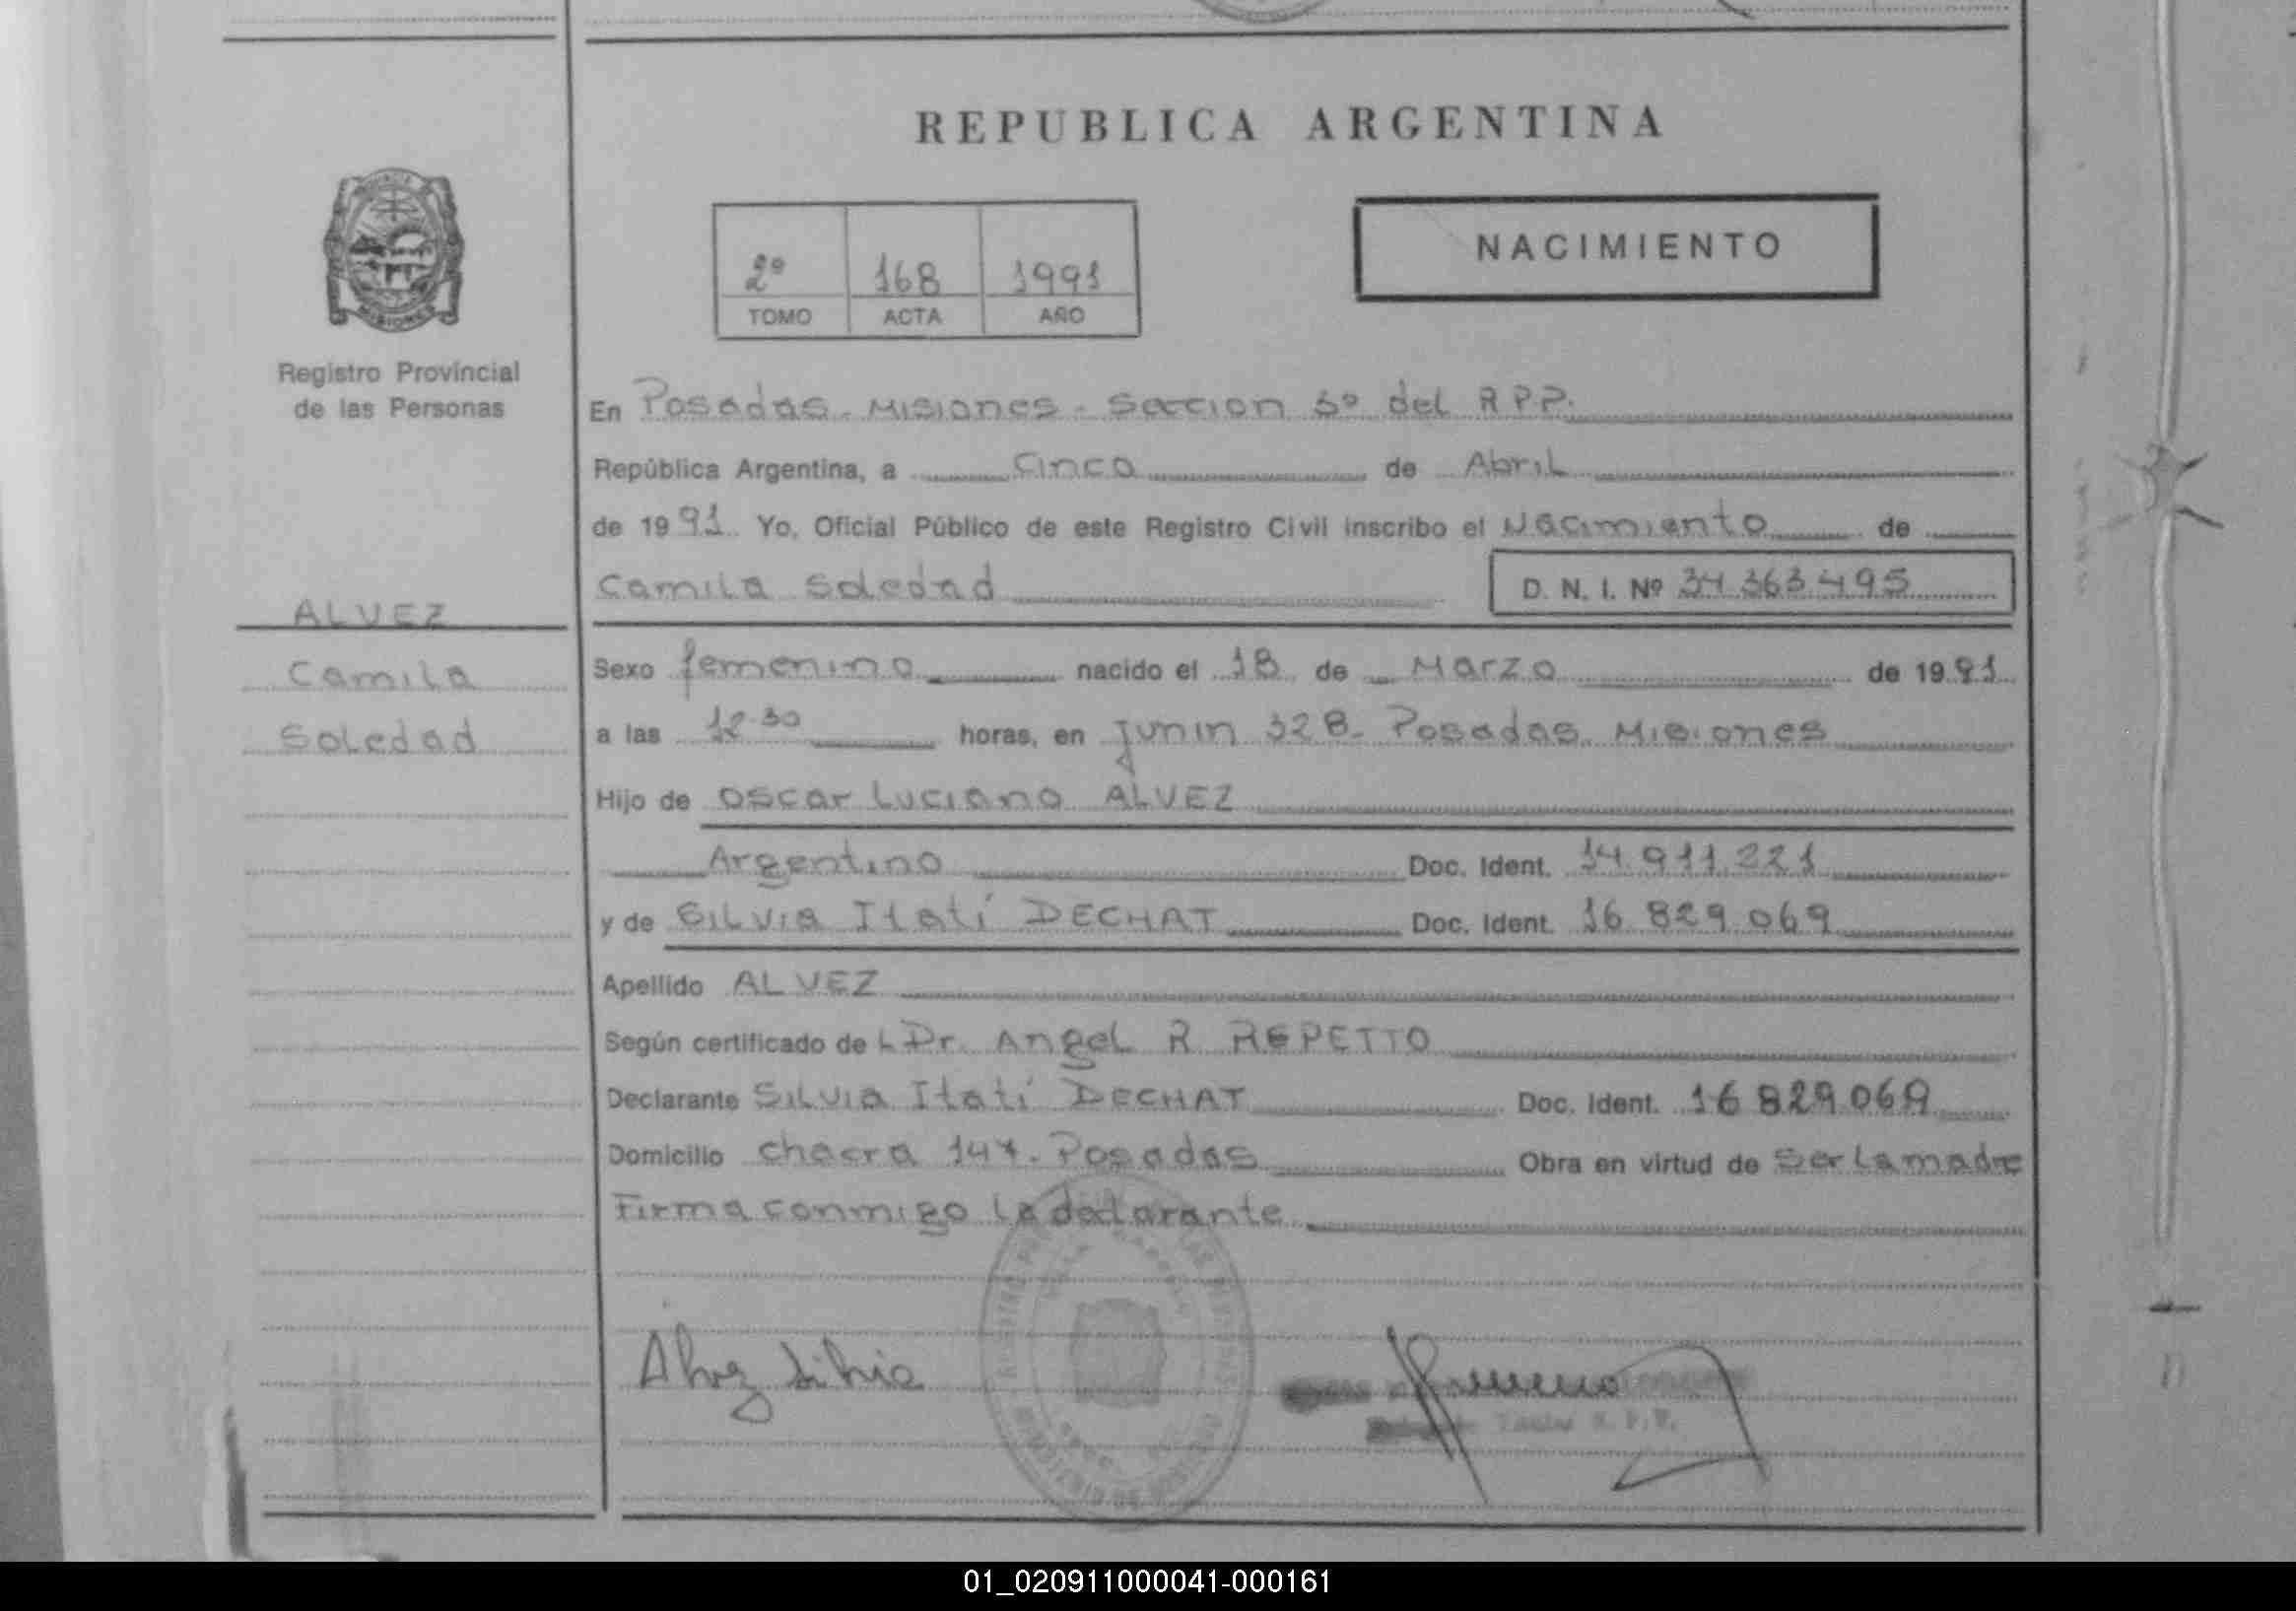 REPUBLICA ARGENTINA
NACIMIENTO
2º 168 1991
TOMO ACTA AÑO
Registro Provincial
de las Personas
En Posadas - Misiones - Seccion 3º del R P P.
República Argentina, a Cinco de Abril
de 1991 Yo, Oficial Público de este Registro Civil inscribo el Nacimiento de
Camila Soledad D. N. I. Nº 34.363.495
ALVEZ
Camila
Soledad
Sexo femenino nacido el 18 de Marzo de 1991
a las 12.30 horas, en Junin 328 - Posadas Misiones
Hijo de Oscar Luciano ALVEZ
Argentino Doc. Ident. 14.911.221
y de Silvia Itatí DECHAT Doc. Ident. 16 829 069
Apellido ALVEZ
Según certificado de L Dr. Angel R REPETTO
Declarante Silvia Itatí DECHAT Doc. Ident. 16 829.069
Domicilio Chacra 147 - Posadas Obra en virtud de Ser La madre
Firma conmigo La declarante
Alvez Silvia
01_020911000041-000161